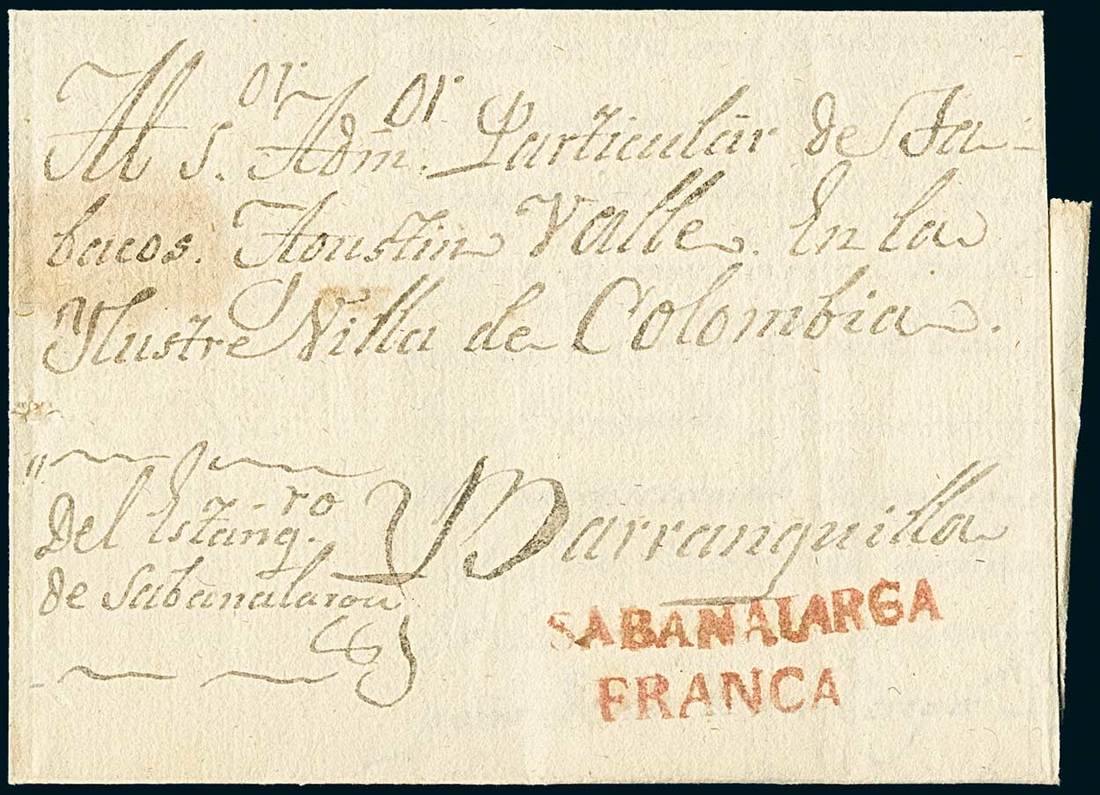 Al S.or Adm.or Particulár de Ta-
bacos. Agustin Valle. En la
Ylustre Villa de Colombia.
Del Estanq.ro
de Sabanalarga
Barranquilla
SABANALARGA
FRANCA